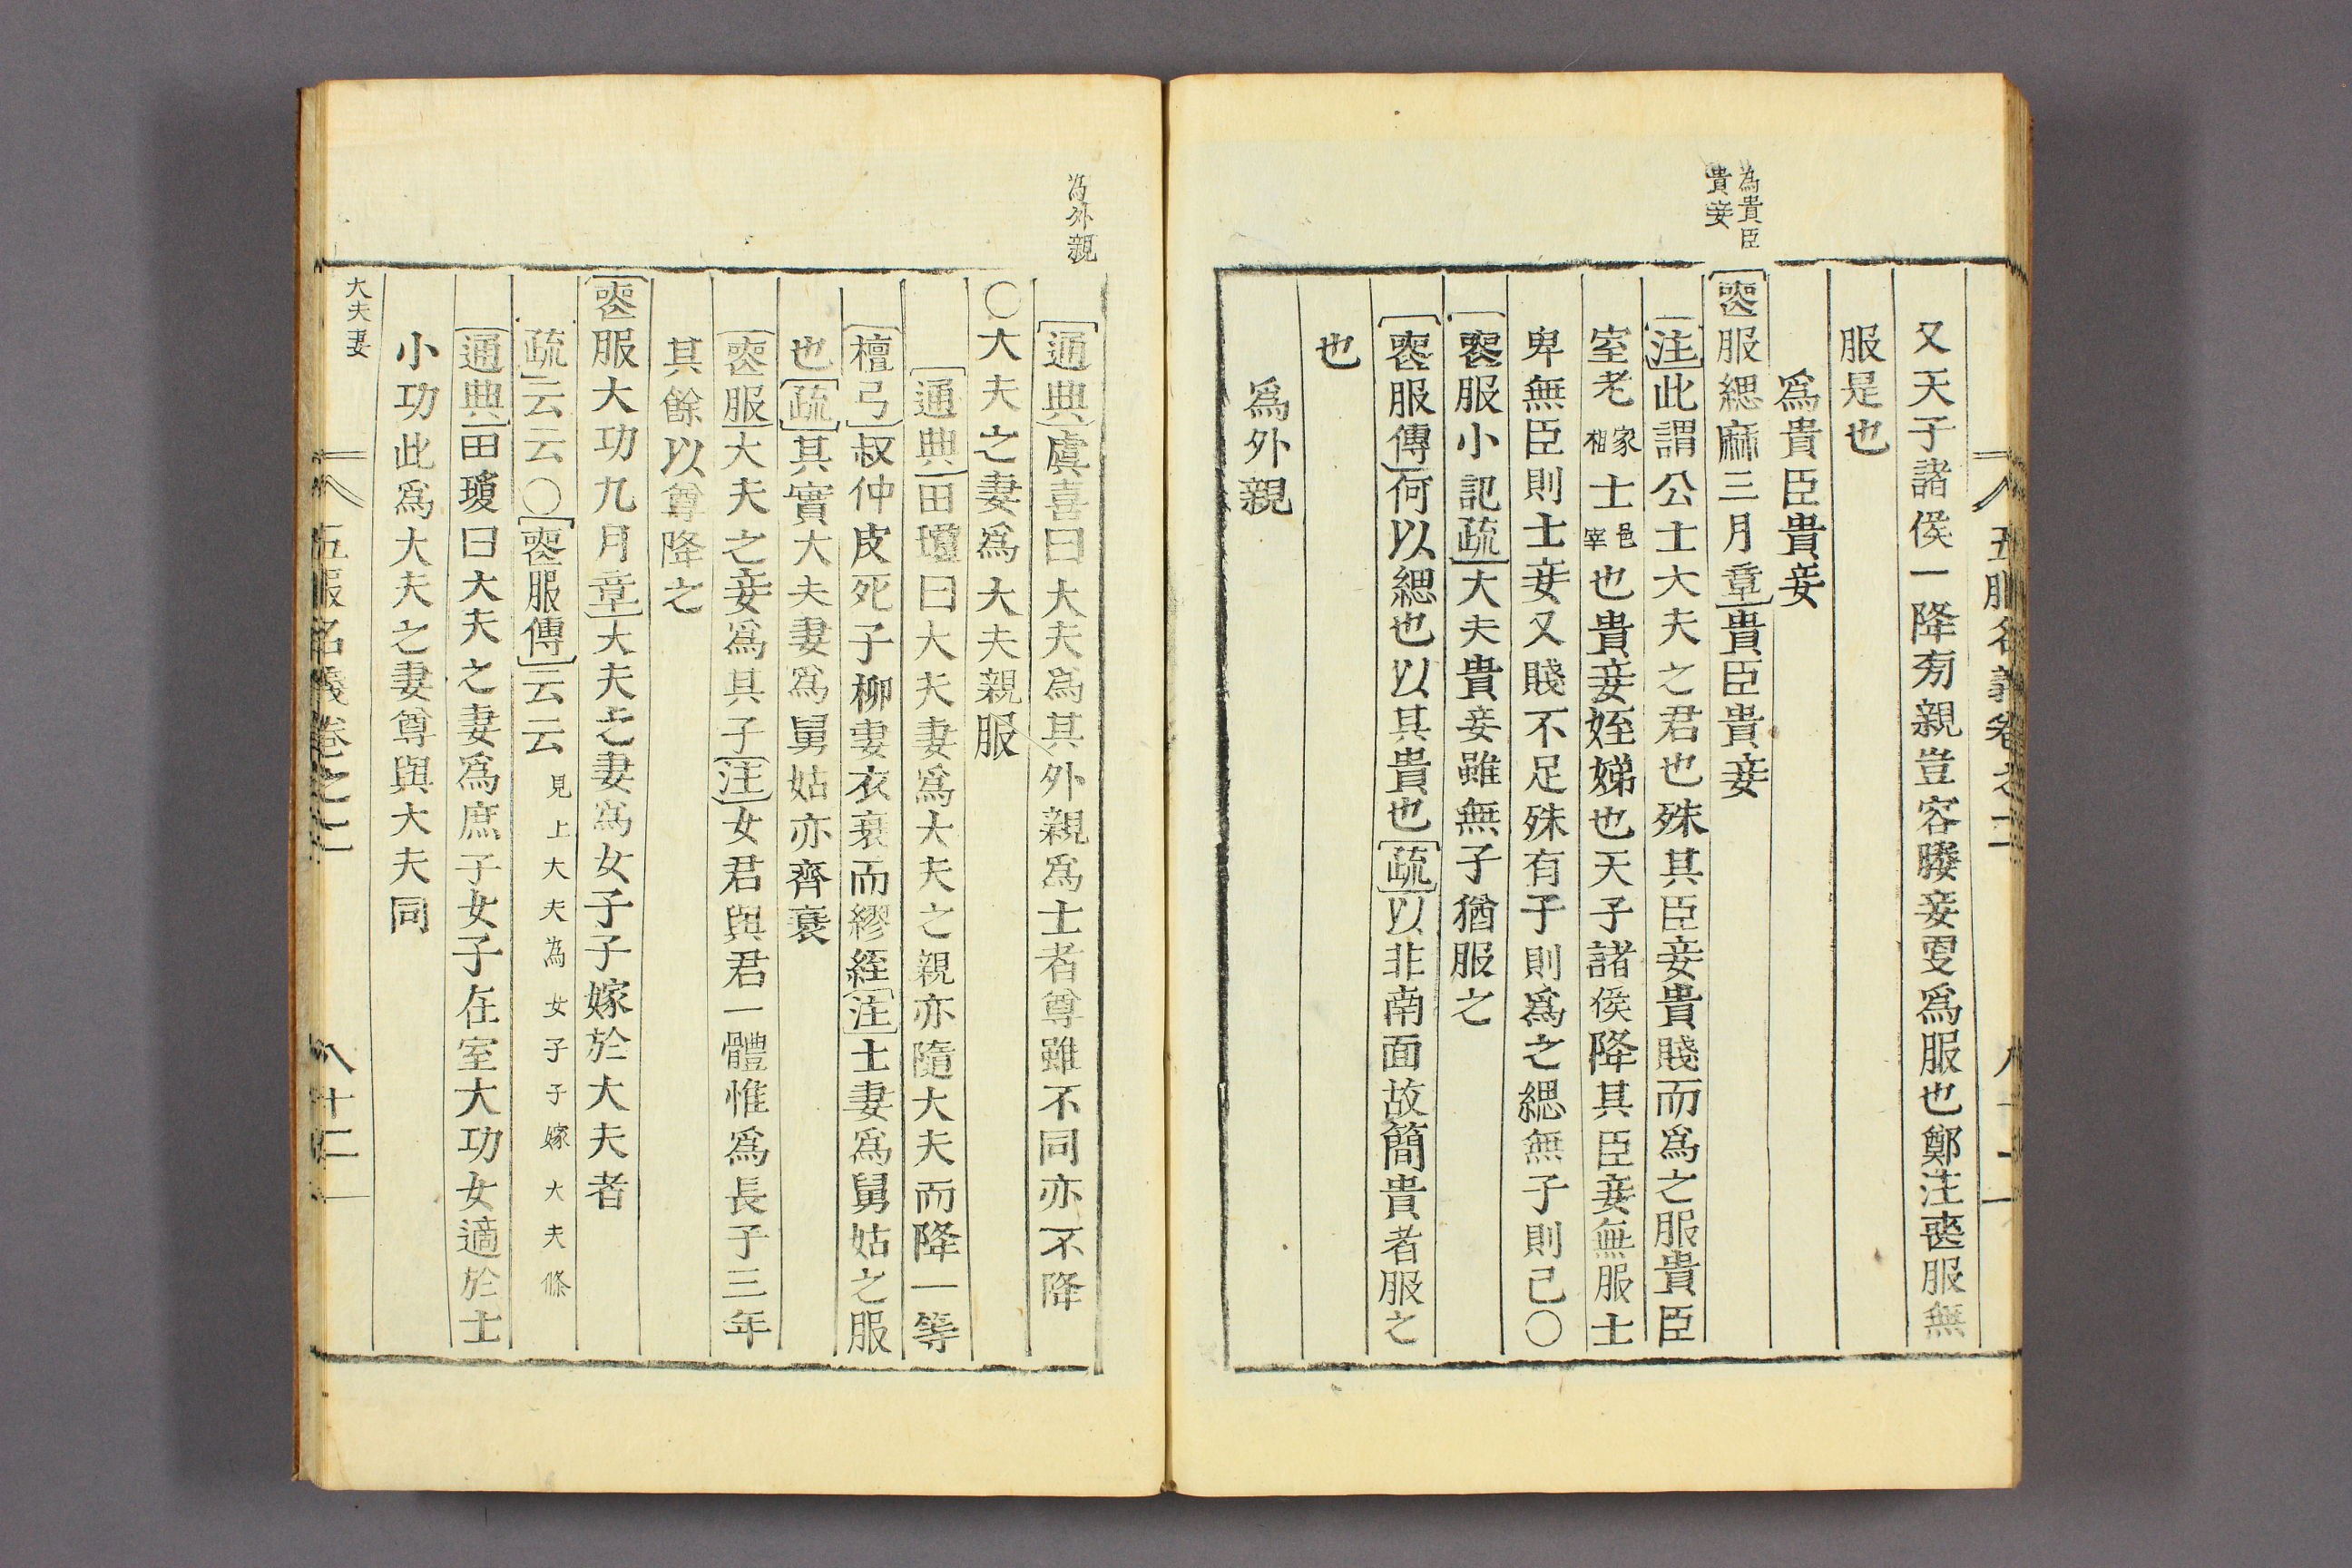 五服名義卷之二
又天子諸侯一降旁親豈容媵妾更爲服也鄭注喪服無
服是也
爲貴臣貴妾
爲貴臣貴妾
喪服緦麻三月章貴臣貴妾
注此謂公士大夫之君也殊其臣妾貴賤而爲之服貴臣
室老家相士邑宰也貴妾姪娣也天子諸侯降其臣妾無服士
卑無臣則士妾又賤不足殊有子則爲之緦無子則已〇
喪服小記疏大夫貴妾雖無子猶服之
喪服傳何以緦也以其貴也疏以非南面故簡貴者服之
也
爲外親
爲外親
通典虞喜曰大夫爲其外親爲士者尊雖不同亦不降
〇大夫之妻爲大夫親服
通典田瓊曰大夫妻爲大夫之親亦隨大夫而降一等
檀弓叔仲皮死子柳妻衣衰而繆絰注士妻爲舅姑之服
也疏其實大夫妻爲舅姑亦齊衰
喪服大夫之妾爲其子注女君與君一體惟爲長子三年
其餘以尊降之
喪服大功九月章大夫之妻爲女子子嫁於大夫者
疏云云〇喪服傳云云見上大夫為女子子嫁大夫條
通典田瓊曰大夫之妻爲庶子女子在室大功女適於士
小功此爲大夫之妻尊與大夫同
大夫妻
五服名義卷之二
八十二